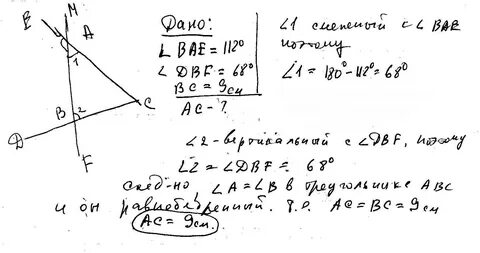 E M A
1
B 2 C
D
F
Дано:
∠ BAE = 112°
∠ DBF = 68°
BC = 9 см
AC - ?
∠1 смежный с ∠ BAE
поэтому
∠1 = 180° - 112° = 68°
∠2 - вертикальный с ∠DBF, поэтому
∠2 = ∠DBF = 68°
след-но, ∠A = ∠B в треугольнике ABC
и он равнобедренный. т.о. AC = BC = 9 см
AC = 9 см.